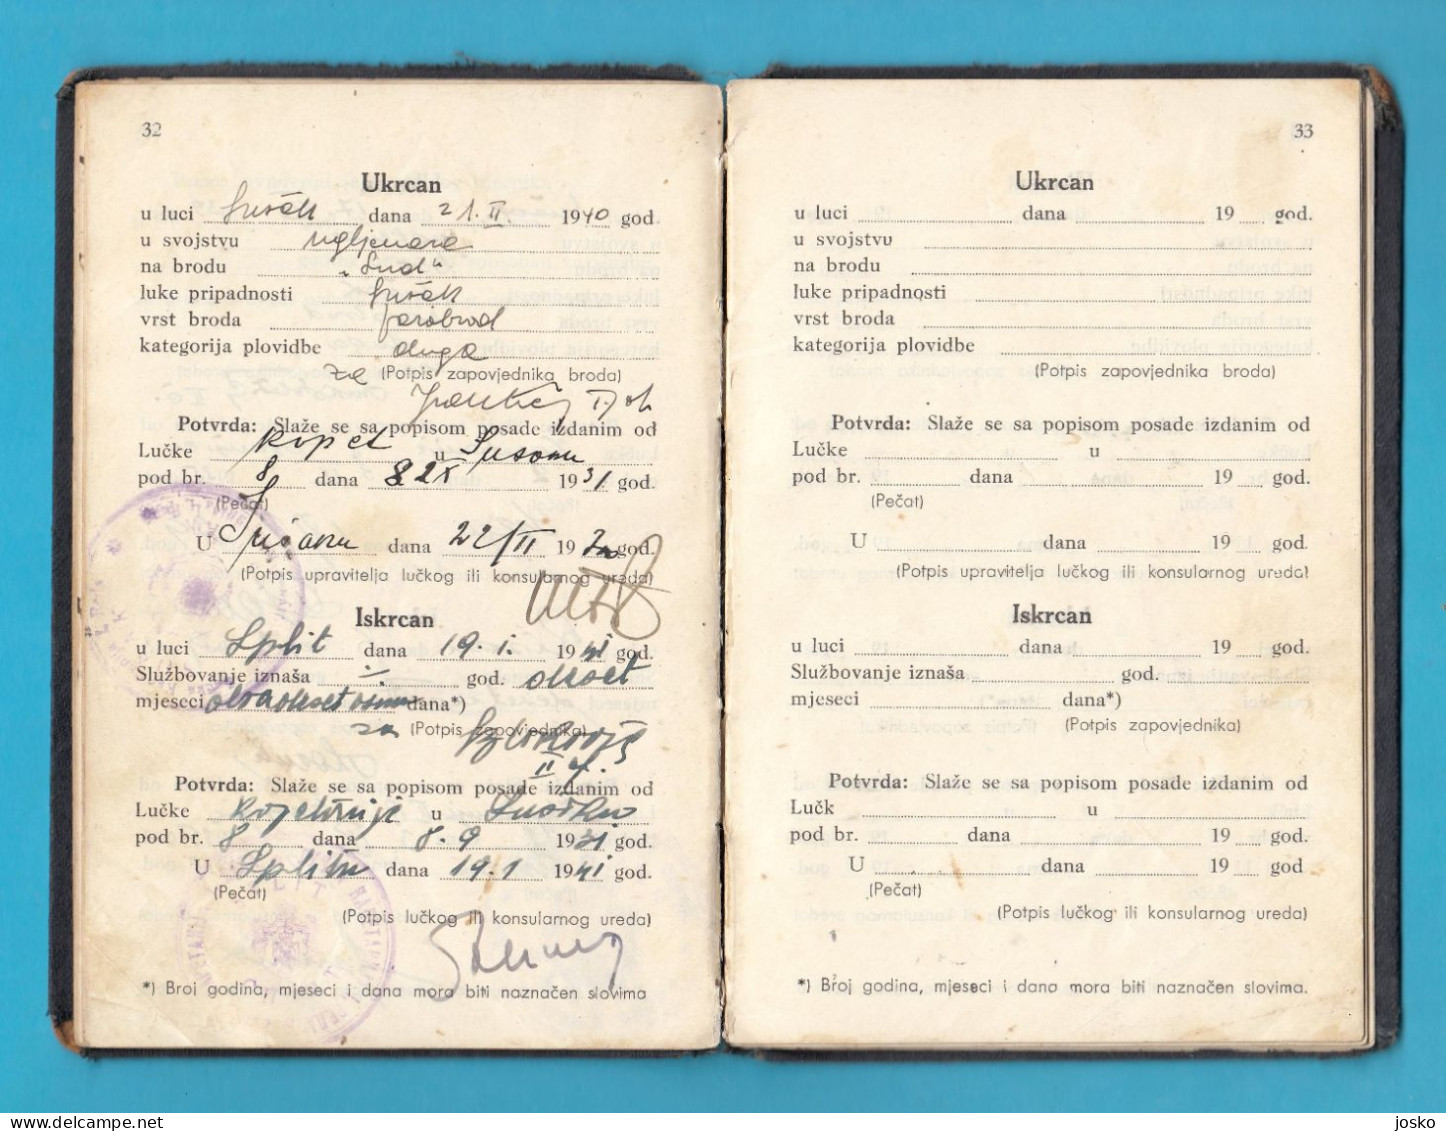 32
Ukrcan
u luci Sušak dana 21. II. 1940 god.
u svojstvu ugljenara
na brodu „Sud“
luke pripadnosti Sušak
vrst broda parobrod
kategorija plovidbe duga
za (Potpis zapovjednika broda)
Potvrda: Slaže se sa popisom posade izdanim od
Lučke kapet u
pod br. 8 dana 19 31 god.
(Pečat)
U dana 22/II 19 god.
(Potpis upravitelja lučkog ili konsularnog ureda)
Iskrcan
u luci Split dana 19. 1. 1941 god.
Službovanje iznaša god.
mjeseci dvadeset osam dana*)
za (Potpis zapovjednika)
Potvrda: Slaže se sa popisom posade izdanim od
Lučke u Sušaku
pod br. 8 dana 8. 9 1931 god.
U Splitu dana 19. 1 1941 god.
(Pečat)
(Potpis lučkog ili konsularnog ureda)
*) Broj godina, mjeseci i dana mora biti naznačen slovima
33
Ukrcan
u luci dana 19 god.
u svojstvu
na brodu
luke pripadnosti
vrst broda
kategorija plovidbe
(Potpis zapovjednika broda)
Potvrda: Slaže se sa popisom posade izdanim od
Lučke u
pod br. dana 19 god.
(Pečat)
U dana 19 god.
(Potpis upravitelja lučkog ili konsularnog ureda)
Iskrcan
u luci dana 19 god.
Službovanje iznaša god.
mjeseci dana*)
(Potpis zapovjednika)
Potvrda: Slaže se sa popisom posade izdanim od
Lučk u
pod br. dana 19 god.
U dana 19 god.
(Pečat)
(Potpis lučkog ili konsularnog ureda)
*) Broj godina, mjeseci i dana mora biti naznačen slovima.
delcampe.net
josko